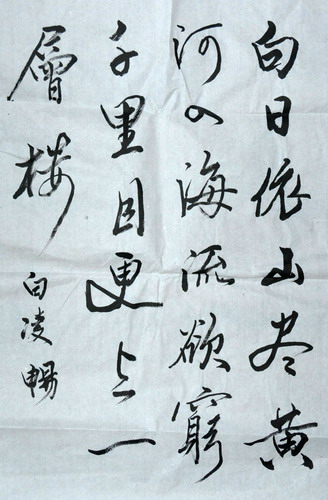 向日依山尽黄
河入海流欲窮
千里目更上一
層楼
白凌暢